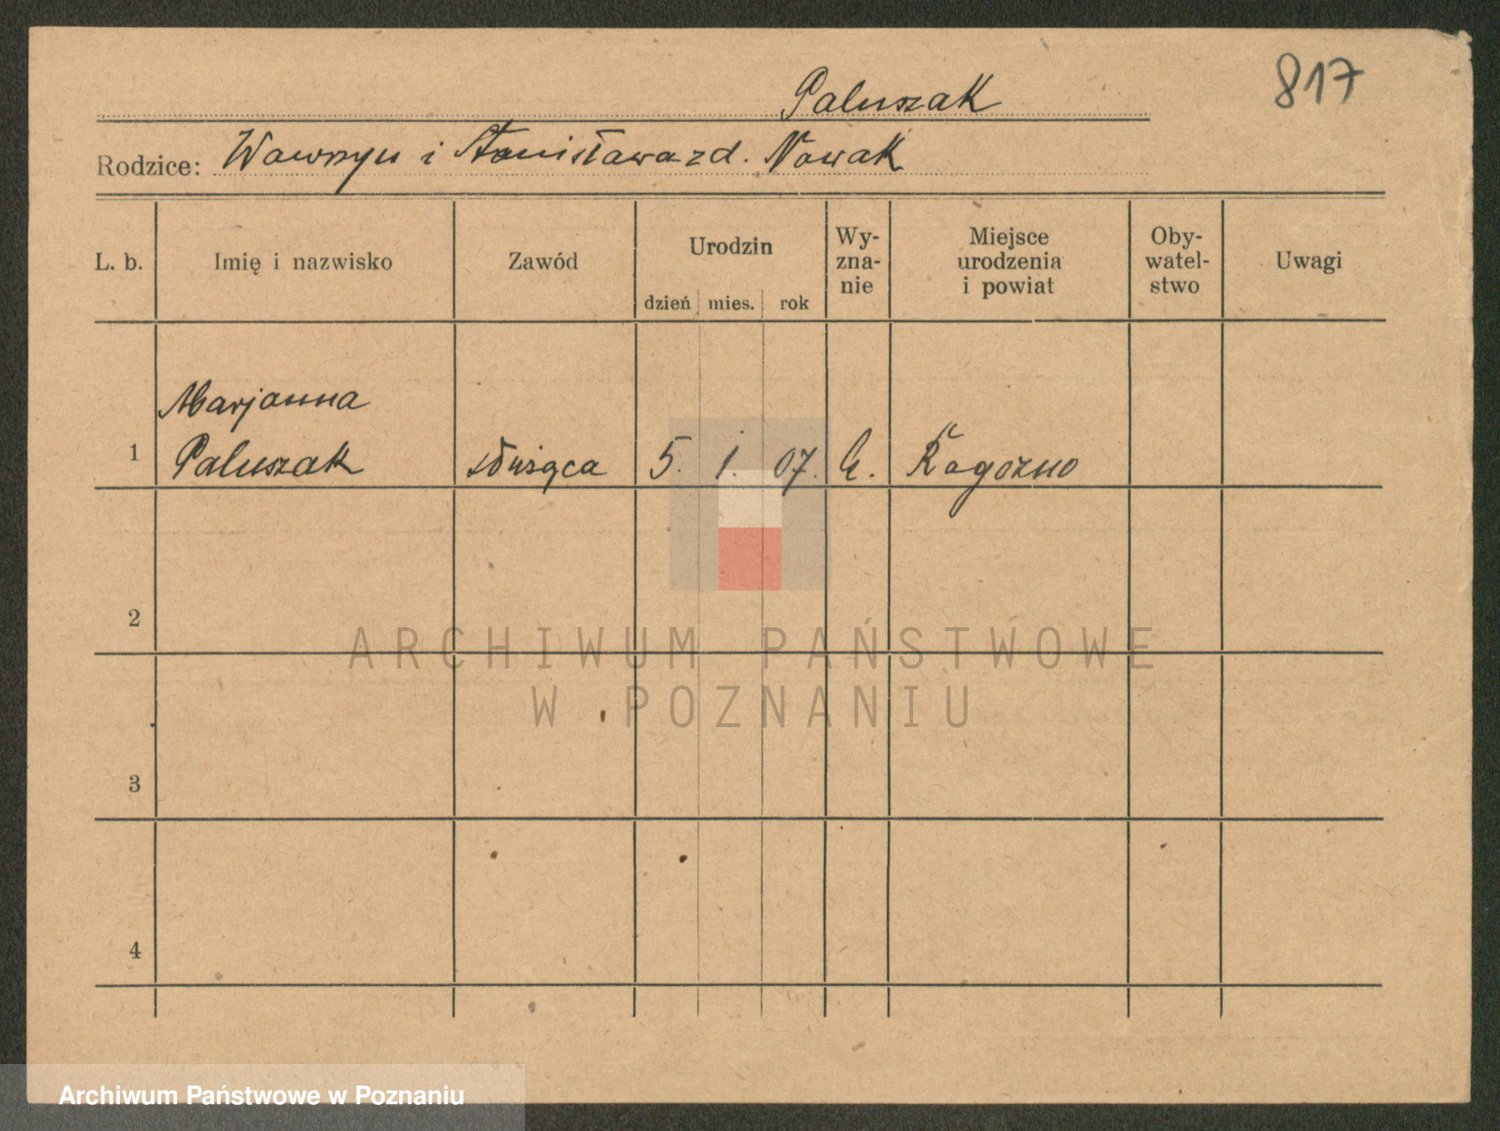 817
Paluszak
Rodzice: Wawrzyn i Stanisława zd. Nowak
L. b. Imię i nazwisko Zawód Urodzin dzień mies. rok Wy-zna-nie Miejsce urodzenia i powiat Oby-watel-stwo Uwagi
Marjanna
1 Paluszak służąca 5. 1. 07. Rogoźno
2
ARCHIWUM PAŃSTWOWE
W POZNANIU
3
4
Archiwum Państwowe w Poznaniu